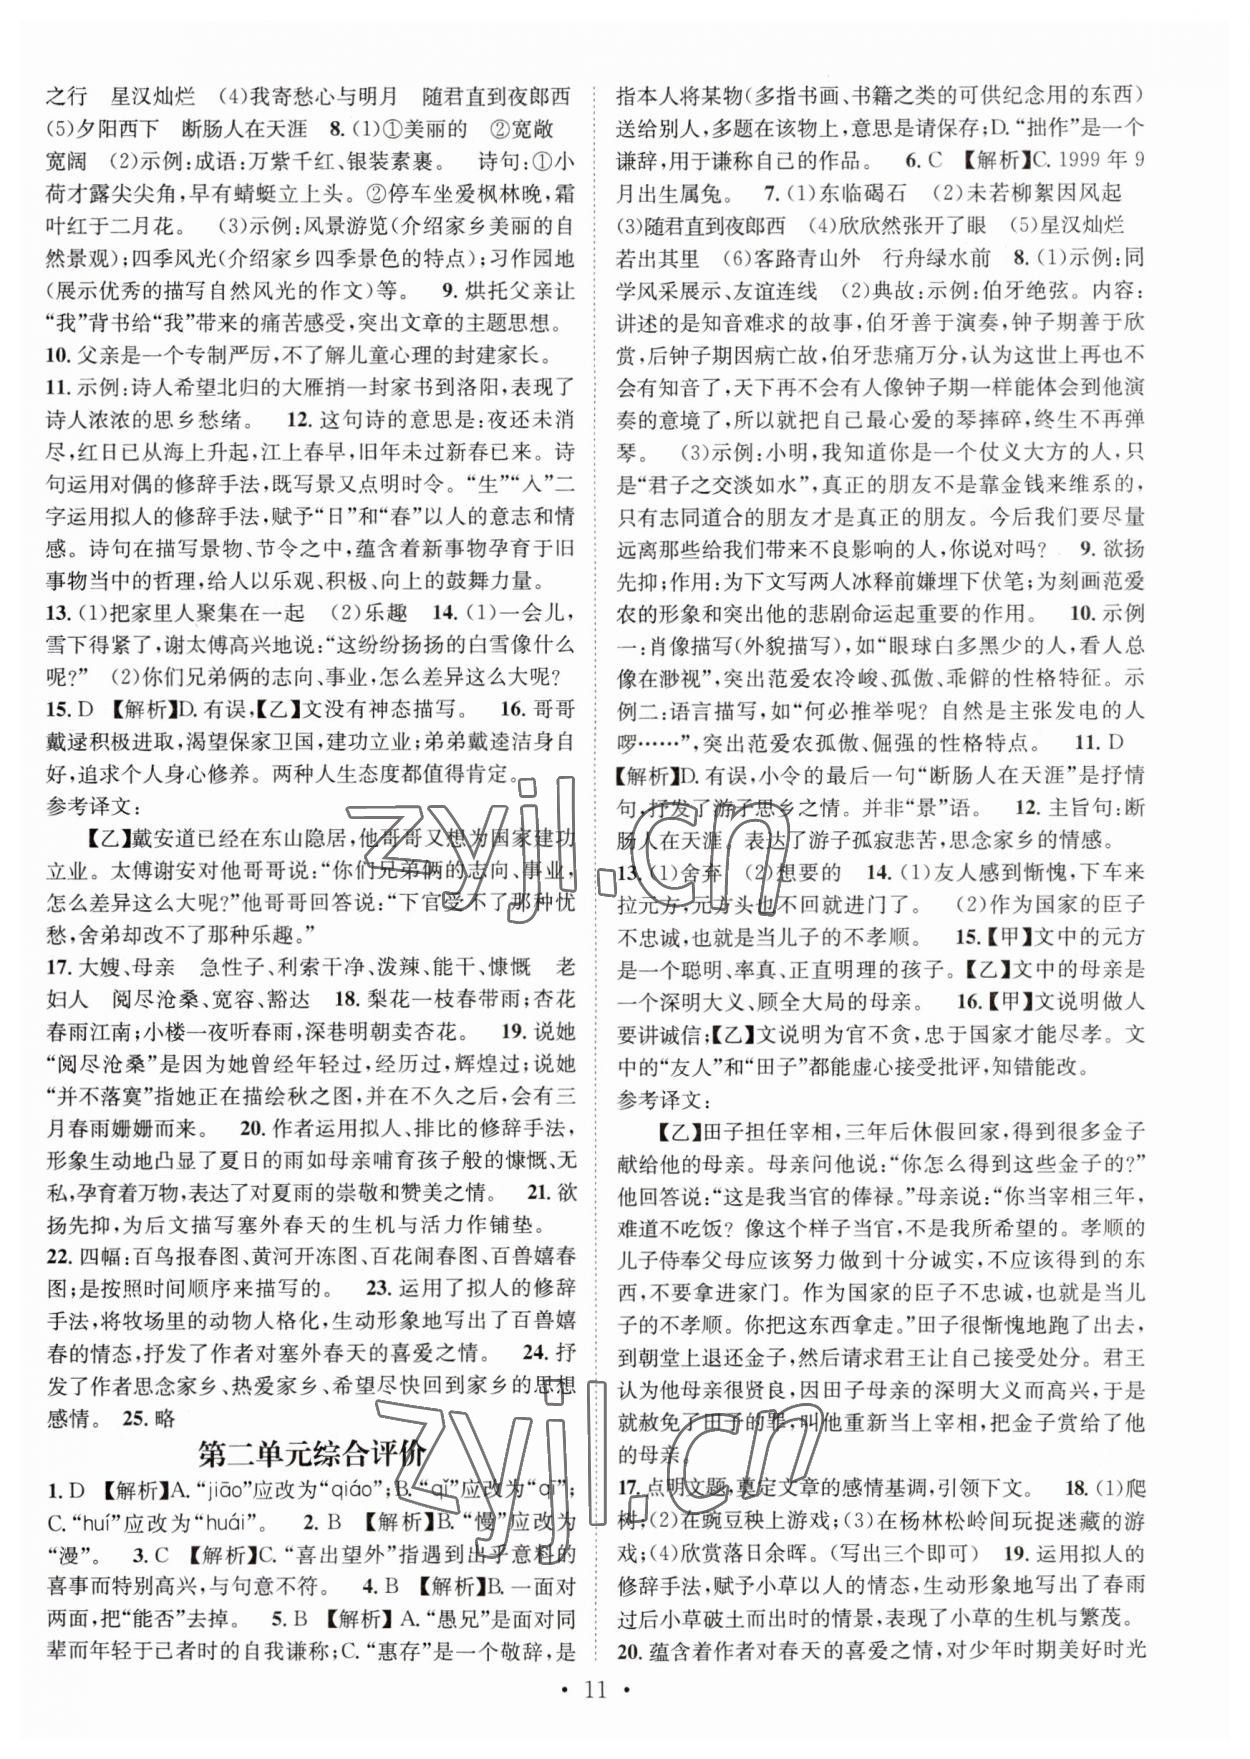 之行　星汉灿烂　(4)我寄愁心与明月　随君直到夜郎西
(5)夕阳西下　断肠人在天涯　8. (1)①美丽的　②宽敞
宽阔　(2)示例:成语:万紫千红、银装素裹。　诗句:①小
荷才露尖尖角,早有蜻蜓立上头。②停车坐爱枫林晚,霜
叶红于二月花。　(3)示例:风景游览(介绍家乡美丽的自
然景观);四季风光(介绍家乡四季景色的特点);习作园地
(展示优秀的描写自然风光的作文)等。　9. 烘托父亲让
“我”背书给“我”带来的痛苦感受,突出文章的主题思想。
10. 父亲是一个专制严厉,不了解儿童心理的封建家长。
11. 示例:诗人希望北归的大雁捎一封家书到洛阳,表现了
诗人浓浓的思乡愁绪。　12. 这句诗的意思是:夜还未消
尽,红日已从海上升起,江上春早,旧年未过新春已来。诗
句运用对偶的修辞手法,既写景又点明时令。“生”“入”二
字运用拟人的修辞手法,赋予“日”和“春”以人的意志和情
感。诗句在描写景物、节令之中,蕴含着新事物孕育于旧
事物当中的哲理,给人以乐观、积极、向上的鼓舞力量。
13. (1)把家里人聚集在一起　(2)乐趣　14. (1)一会儿,
雪下得紧了,谢太傅高兴地说:“这纷纷扬扬的白雪像什么
呢?”　(2)你们兄弟俩的志向、事业,怎么差异这么大呢?
15. D　【解析】D. 有误,【乙】文没有神态描写。　16. 哥哥
戴逯积极进取,渴望保家卫国,建功立业;弟弟戴逵洁身自
好,追求个人身心修养。两种人生态度都值得肯定。
参考译文:
【乙】戴安道已经在东山隐居,他哥哥又想为国家建功
立业。太傅谢安对他哥哥说:“你们兄弟俩的志向、事业,
怎么差异这么大呢?”他哥哥回答说:“下官受不了那种忧
愁,舍弟却改不了那种乐趣。”
17. 大嫂、母亲　急性子、利索干净、泼辣、能干、慷慨　老
妇人　阅尽沧桑、宽容、豁达　18. 梨花一枝春带雨;杏花
春雨江南;小楼一夜听春雨,深巷明朝卖杏花。　19. 说她
“阅尽沧桑”是因为她曾经年轻过,经历过,辉煌过;说她
“并不落寞”指她正在描绘秋之图,并在不久之后,会有三
月春雨姗姗而来。　20. 作者运用拟人、排比的修辞手法,
形象生动地凸显了夏日的雨如母亲哺育孩子般的慷慨、无
私,孕育着万物,表达了对夏雨的崇敬和赞美之情。　21. 欲
扬先抑,为后文描写塞外春天的生机与活力作铺垫。
22. 四幅:百鸟报春图、黄河开冻图、百花闹春图、百兽嬉春
图;是按照时间顺序来描写的。　23. 运用了拟人的修辞
手法,将牧场里的动物人格化,生动形象地写出了百兽嬉
春的情态,抒发了作者对塞外春天的喜爱之情。　24. 抒
发了作者思念家乡、热爱家乡、希望尽快回到家乡的思想
感情。　25. 略
第二单元综合评价
1. D　【解析】A. “jiāo”应改为“qiáo”;B. “qǐ”应改为“qì”;
C. “huí”应改为“huái”。　2. B　【解析】B. “慢”应改为
“漫”。　3. C　【解析】C. “喜出望外”指遇到出乎意料的
喜事而特别高兴,与句意不符。　4. B　【解析】B. 一面对
两面,把“能否”去掉。　5. B　【解析】A. “愚兄”是面对同
辈而年轻于己者时的自我谦称;C. “惠存”是一个敬辞,是
指本人将某物(多指书画、书籍之类的可供纪念用的东西)
送给别人,多题在该物上,意思是请保存;D. “拙作”是一个
谦辞,用于谦称自己的作品。　6. C　【解析】C. 1999 年 9
月出生属兔。　7. (1)东临碣石　(2)未若柳絮因风起
(3)随君直到夜郎西　(4)欣欣然张开了眼　(5)星汉灿烂
若出其里　(6)客路青山外　行舟绿水前　8. (1)示例:同
学风采展示、友谊连线　(2)典故:示例:伯牙绝弦。内容:
讲述的是知音难求的故事,伯牙善于演奏,钟子期善于欣
赏,后钟子期因病亡故,伯牙悲痛万分,认为这世上再也不
会有知音了,天下再不会有人像钟子期一样能体会到他演
奏的意境了,所以就把自己最心爱的琴摔碎,终生不再弹
琴。　(3)示例:小明,我知道你是一个仗义大方的人,只
是“君子之交淡如水”,真正的朋友不是靠金钱来维系的,
只有志同道合的朋友才是真正的朋友。今后我们要尽量
远离那些给我们带来不良影响的人,你说对吗?　9. 欲扬
先抑;作用:为下文写两人冰释前嫌埋下伏笔;为刻画范爱
农的形象和突出他的悲剧命运起重要的作用。　10. 示例
一:肖像描写(外貌描写),如“眼球白多黑少的人,看人总
像在渺视”,突出范爱农冷峻、孤傲、乖僻的性格特征。示
例二:语言描写,如“何必推举呢? 自然是主张发电的人
啰……”,突出范爱农孤傲、倔强的性格特点。　11. D
【解析】D. 有误,小令的最后一句“断肠人在天涯”是抒情
句,抒发了游子思乡之情。并非“景”语。　12. 主旨句:断
肠人在天涯。表达了游子孤寂悲苦,思念家乡的情感。
13. (1)舍弃　(2)想要的　14. (1)友人感到惭愧,下车来
拉元方,元方头也不回就进门了。　(2)作为国家的臣子
不忠诚,也就是当儿子的不孝顺。　15. 【甲】文中的元方
是一个聪明、率真、正直明理的孩子。【乙】文中的母亲是
一个深明大义、顾全大局的母亲。　16. 【甲】文说明做人
要讲诚信;【乙】文说明为官不贪,忠于国家才能尽孝。文
中的“友人”和“田子”都能虚心接受批评,知错能改。
参考译文:
【乙】田子担任宰相,三年后休假回家,得到很多金子
献给他的母亲。母亲问他说:“你怎么得到这些金子的?”
他回答说:“这是我当官的俸禄。”母亲说:“你当宰相三年,
难道不吃饭? 像这个样子当官,不是我所希望的。孝顺的
儿子侍奉父母应该努力做到十分诚实,不应该得到的东
西,不要拿进家门。作为国家的臣子不忠诚,也就是当儿
子的不孝顺。你把这东西拿走。”田子很惭愧地跑了出去,
到朝堂上退还金子,然后请求君王让自己接受处分。君王
认为他母亲很贤良,因田子母亲的深明大义而高兴,于是
就赦免了田子的罪,叫他重新当上宰相,把金子赏给了他
的母亲。
17. 点明文题,奠定文章的感情基调,引领下文。　18. (1)爬
树;(2)在豌豆秧上游戏;(3)在杨林松岭间玩捉迷藏的游
戏;(4)欣赏落日余晖。(写出三个即可)　19. 运用拟人的
修辞手法,赋予小草以人的情态,生动形象地写出了春雨
过后小草破土而出时的情景,表现了小草的生机与繁茂。
20. 蕴含着作者对春天的喜爱之情,对少年时期美好时光
• 11 •
zyjl.cn
zyjl.cn